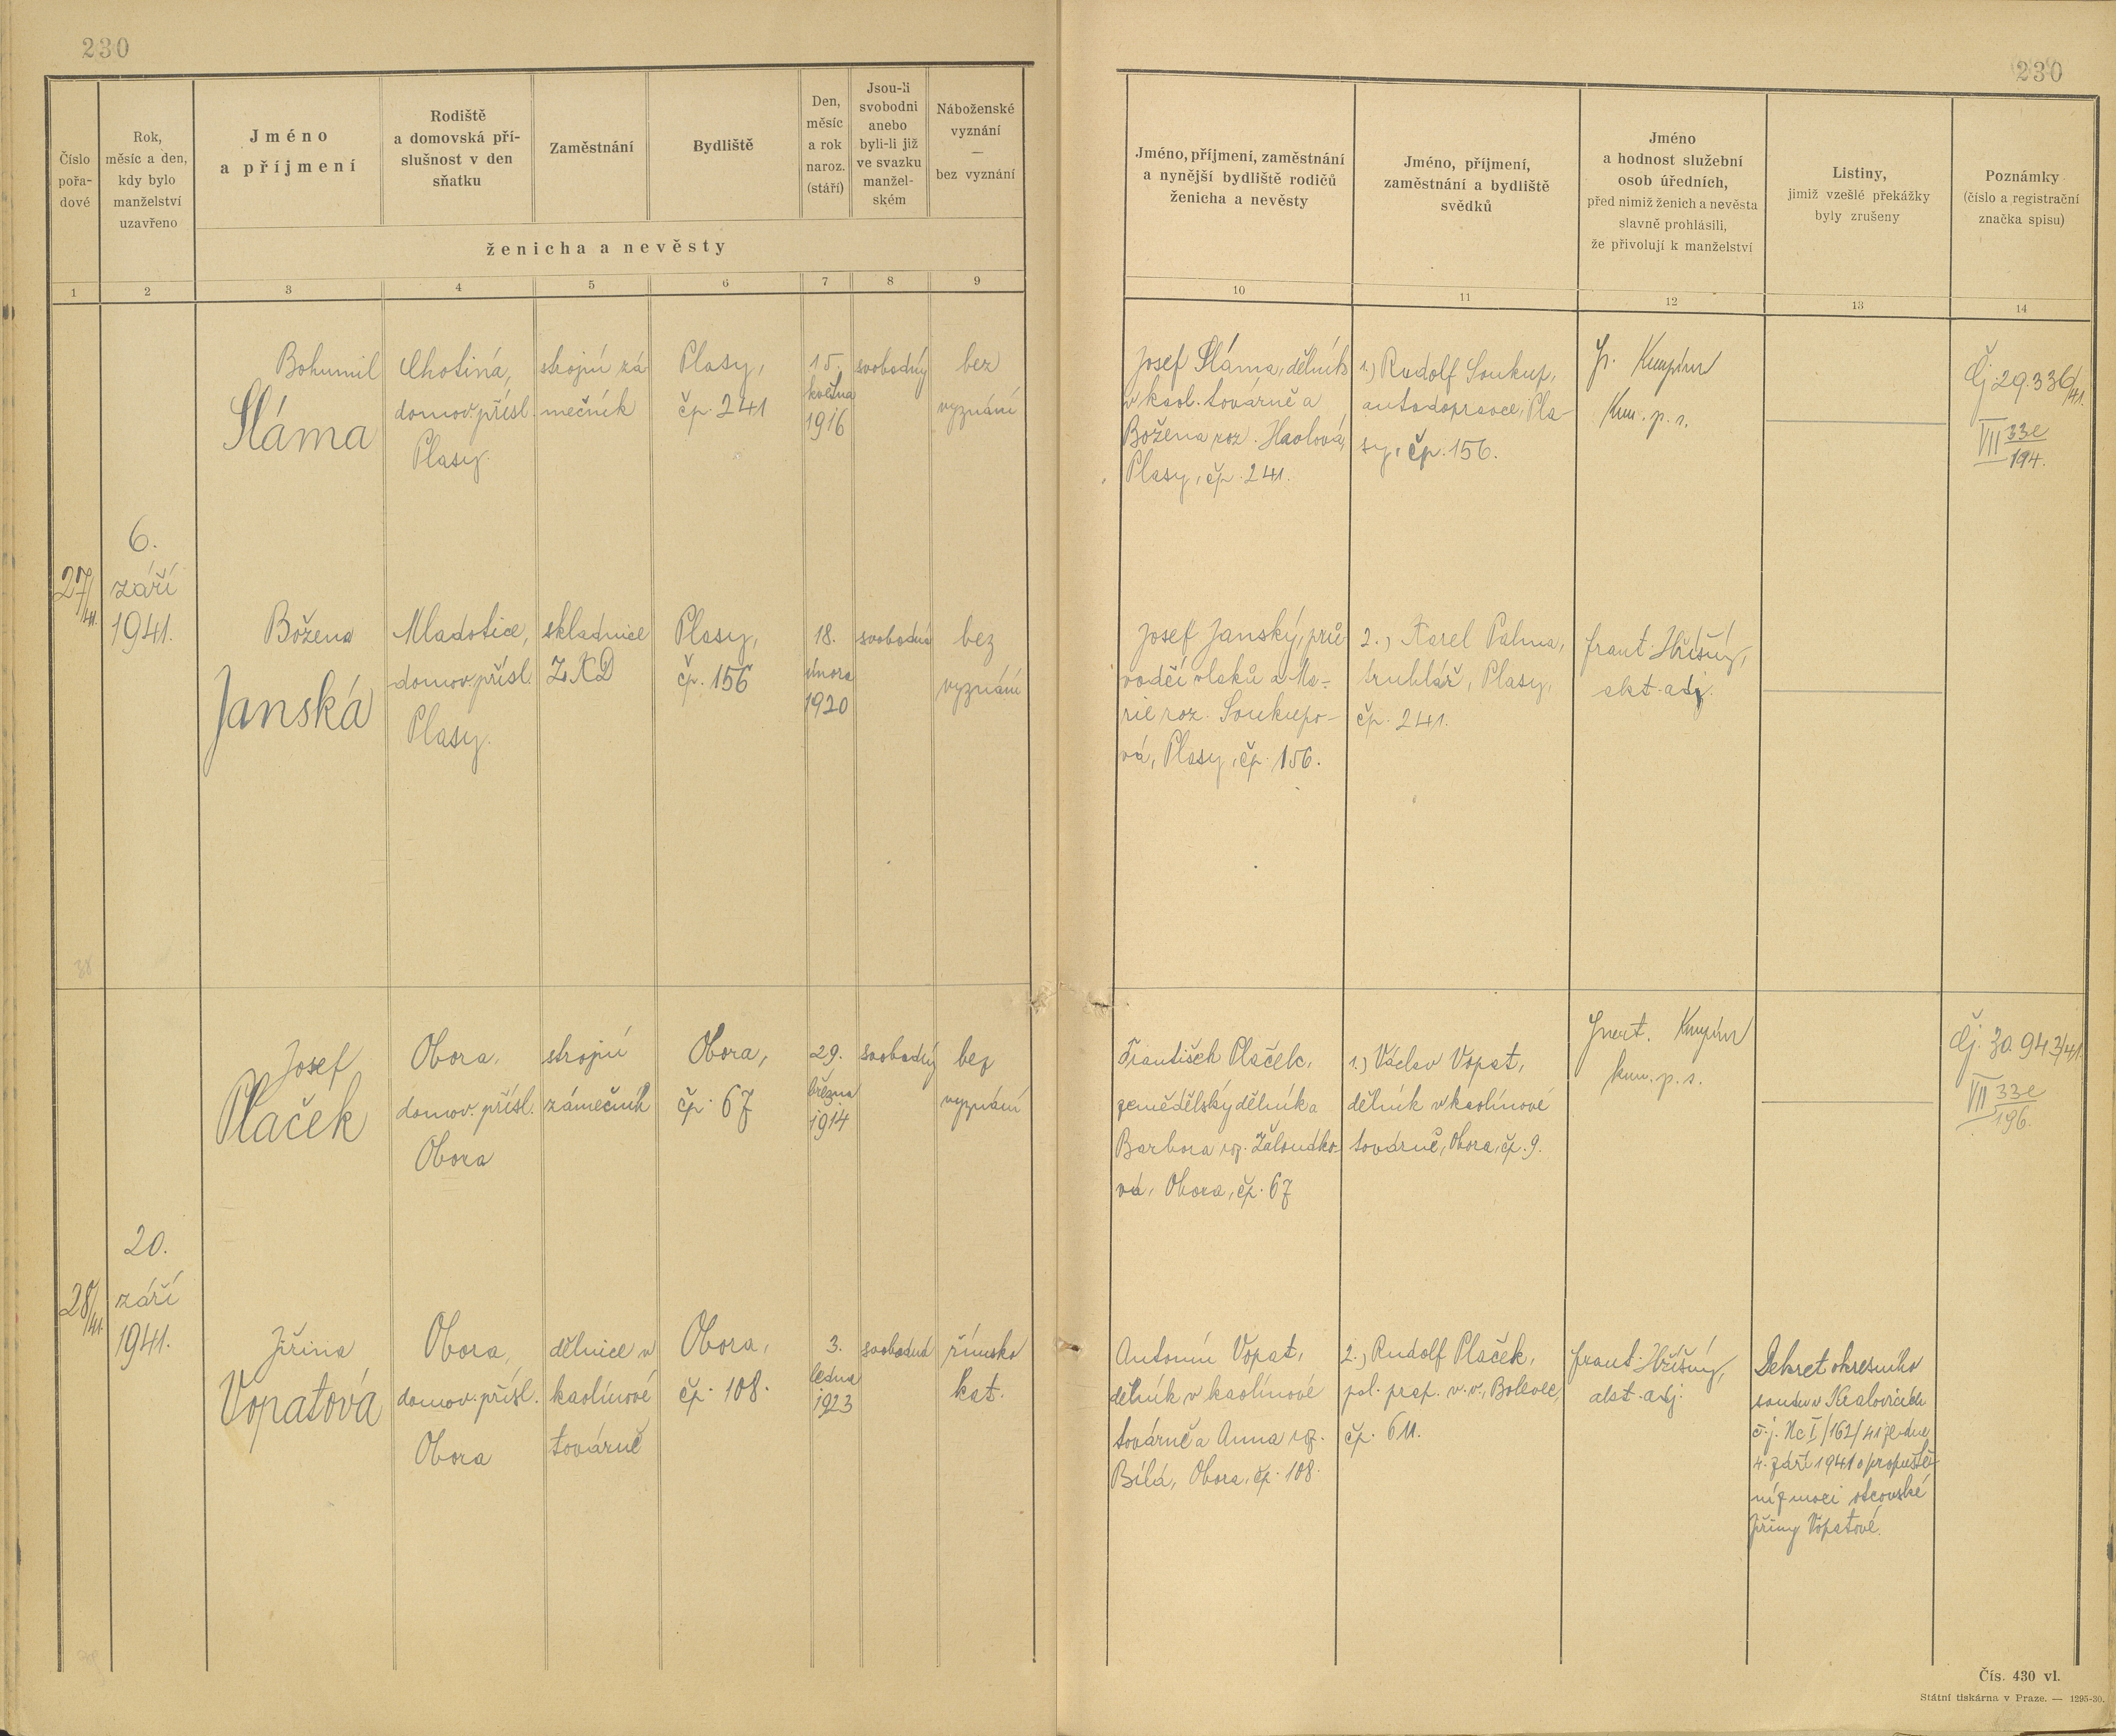 230
230
Číslo
pořa-
dové
Rok,
měsíc a den,
kdy bylo
manželství
uzavřeno
Jméno
a příjmení
Rodiště
a domovská pří-
slušnost v den
sňatku
Zaměstnání
Bydliště
Den,
měsíc
a rok
naroz.
(stáří)
Jsou-li
svobodni
anebo
byli-li již
ve svazku
manžel-
ském
Náboženské
vyznání
—
bez vyznání
ženicha a nevěsty
1 2 3 4 5 6 7 8 9
Jméno, příjmení, zaměstnání
a nynější bydliště rodičů
ženicha a nevěsty
Jméno, příjmení,
zaměstnání a bydliště
svědků
Jméno
a hodnost služební
osob úředních,
před nimiž ženich a nevěsta
slavně prohlásili,
že přivolují k manželství
Listiny,
jimiž vzešlé překážky
byly zrušeny
Poznámky
(číslo a registrační
značka spisu)
10 11 12 13 14
27/41.
6.
září
1941.
Bohumil
Sláma
Chotiná,
domov. přísl.
Plasy.
strojní zá
mečník
Plasy,
čp. 241
15.
května
1916
svobodný
bez
vyznání
Josef Sláma, dělník
v kaol. továrně a
Božena roz.
Plasy, čp. 241.
1.) Rudolf Soukup,
autodopravce, Pla-
sy, čp. 156.
Čj 29.336/41.
VII 33e
194.
Božena
Janská
Mladotice,
domov. přísl.
Plasy.
skladnice
ZKD
Plasy,
čp. 156
18.
února
1920
svobodná
bez
vyznání
Josef Janský, prů-
vodčí vlaků a Ma-
rie roz. Soukupo-
vá, Plasy, čp. 156.
2.) Karel Palma,
truhlář, Plasy,
čp. 241.
frant.
akt. adj.
28/41
20.
září
1941.
Josef
Plaček
Obora,
domov. přísl.
Obora
strojní
zámečník
Obora,
čp. 67
29.
března
1914
svobodný
bez
vyznání
František Plaček,
zemědělský dělník a
Barbora roz.
vá, Obora, čp. 67
1.) Václav Vopat,
dělník v kaolínové
továrně, Obora, čp. 9.
Čj. 30.943/41.
VII 33e
196.
Jiřina
Vopatová
Obora,
domov. přísl.
Obora
dělnice v
kaolínové
továrně
Obora,
čp. 108.
3.
ledna
1923
svobodná
římsko
kat.
Antonín Vopat,
dělník v kaolínové
továrně a Anna roz.
Bílá, Obora, čp. 108.
2.) Rudolf Plaček,
Bolevec,
čp. 611.
frant.
akt. adj.
Dekret okresního
soudu v Kralovicích
č. j. Nc I/162/41 ze dne
4. září 1941 o propuště-
ní z moci otcovské
Jiřiny Vopatové.
Čís. 430 vl.
Státní tiskárna v Praze. — 1295-30.